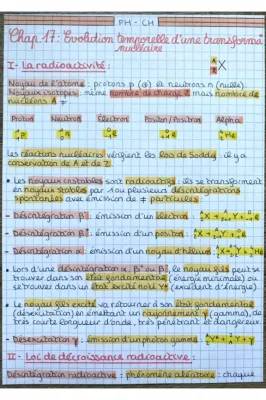 PH - CH
Chap 17: Evolution temporelle d'une transforma°
nucléaire
I - La radioactivité:
A
Z X
Noyau de l'atome: protons p (⊕) et neutrons n (nulle).
Noyaux isotopes: même nombre de charge Z mais nombre de
nucléons A ≠
Proton Neutron Électron Positon / Positron Alpha
Les réactions nucléaires vérifient les lois de Soddy: il y a
conservation de A et de Z.
• Les noyaux instables sont radioactifs: ils se transforment
en noyaux stables par 1 ou plusieurs désintégrations
spontanées avec émission de ≠ particules
- Désintégration β⁻: émission d'un électron
- Désintégration β⁺: émission d'un positon
- Désintégration α: émission d'un noyau d'hélium
• Lors d'une désintégration α, β⁺ ou β⁻, le noyau fils peut se
trouver dans son état fondamental (énergie minimale) ou
se trouver dans un état excité noté Y* (excédent d'énergie).
• Le noyau fils excité va retourner à son état fondamental
(désexcitation) en émettant un rayonnement γ (gamma), de
très courte longueur d'onde, très pénétrant et dangereux.
- Désexcitation γ: émission d'un photon gamma
II - Loi de décroissance radioactive:
Désintégration radioactive: phénomène aléatoire: chaque